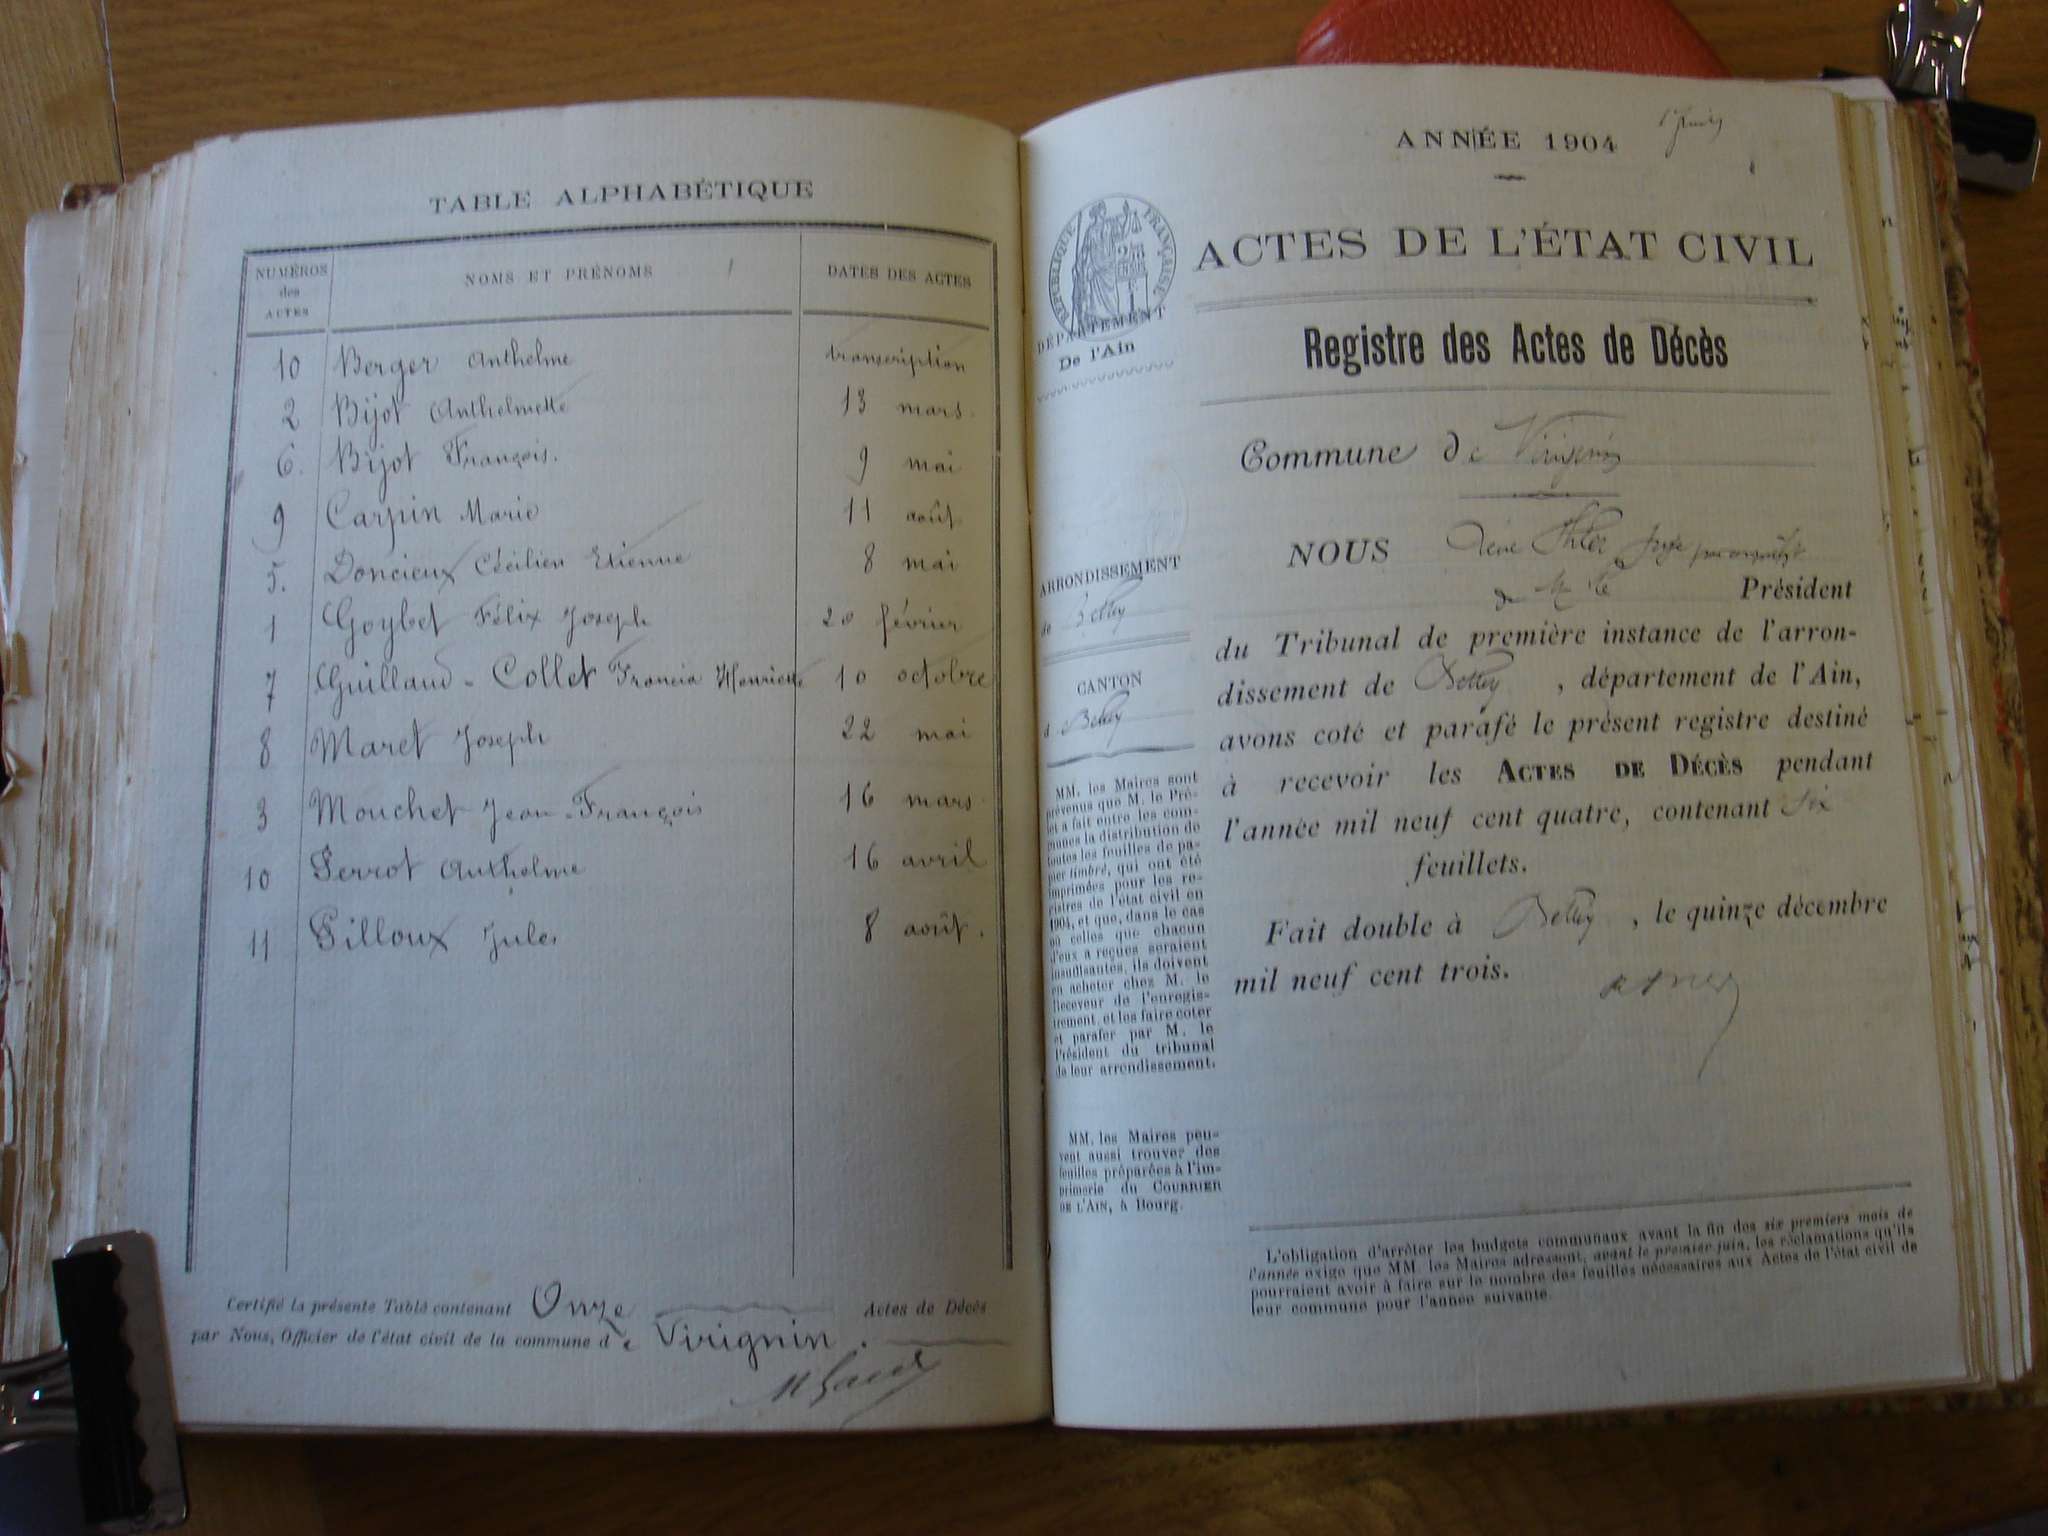 TABLE ALPHABÉTIQUE
NUMÉROS des ACTES NOMS ET PRÉNOMS DATES DES ACTES
10 Berger Anthelme transcription
2 Bijot Anthelmette 13 mars
6. Bijot François. 9 mai
9 Carpin Marie 11 août
5. Doncieux Cécilien Etienne 8 mai
1 Goybet Félix Joseph 20 février
7 Guillaud-Collet Francia Henriette 10 octobre
8 Maret Joseph 22 mai
3 Mouchet Jean-François 16 mars
10 Perrot Anthelme 16 avril
11 Pilloux Jules 8 août.
Certifié la présente Table contenant Onze Actes de Décès
par Nous, Officier de l'état civil de la commune de Virignin.
ANNÉE 1904
ACTES DE L'ÉTAT CIVIL
RÉPUBLIQUE FRANÇAISE
DÉPARTEMENT
De l'Ain
Registre des Actes de Décès
Commune de Virignin
ARRONDISSEMENT
de Belley
CANTON
d Belley
MM. les Maires sont
prévenus que M. le Pré-
fet a fait entre les com-
munes la distribution de
toutes les feuilles de pa-
pier timbré, qui ont été
imprimées pour les re-
gistres de l'état civil en
1904, et que, dans le cas
où celles que chacun
d'eux a reçues seraient
insuffisantes, ils doivent
en acheter chez M. le
Receveur de l'enregis-
trement, et les faire coter
et parafer par M. le
Président du tribunal
de leur arrondissement.
MM. les Maires peu-
vent aussi trouver des
feuilles préparées à l'im-
primerie du COURRIER
DE L'AIN, à Bourg.
NOUS
Président
du Tribunal de première instance de l'arron-
dissement de Belley, département de l'Ain,
avons coté et parafé le présent registre destiné
à recevoir les ACTES DE DÉCÈS pendant
l'année mil neuf cent quatre, contenant six
feuillets.
Fait double à Belley, le quinze décembre
mil neuf cent trois.
L'obligation d'arrêter les budgets communaux avant la fin des six premiers mois de
l'année exige que MM. les Maires adressent, avant le premier juin, les réclamations qu'ils
pourraient avoir à faire sur le nombre des feuilles nécessaires aux Actes de l'état civil de
leur commune pour l'année suivante.